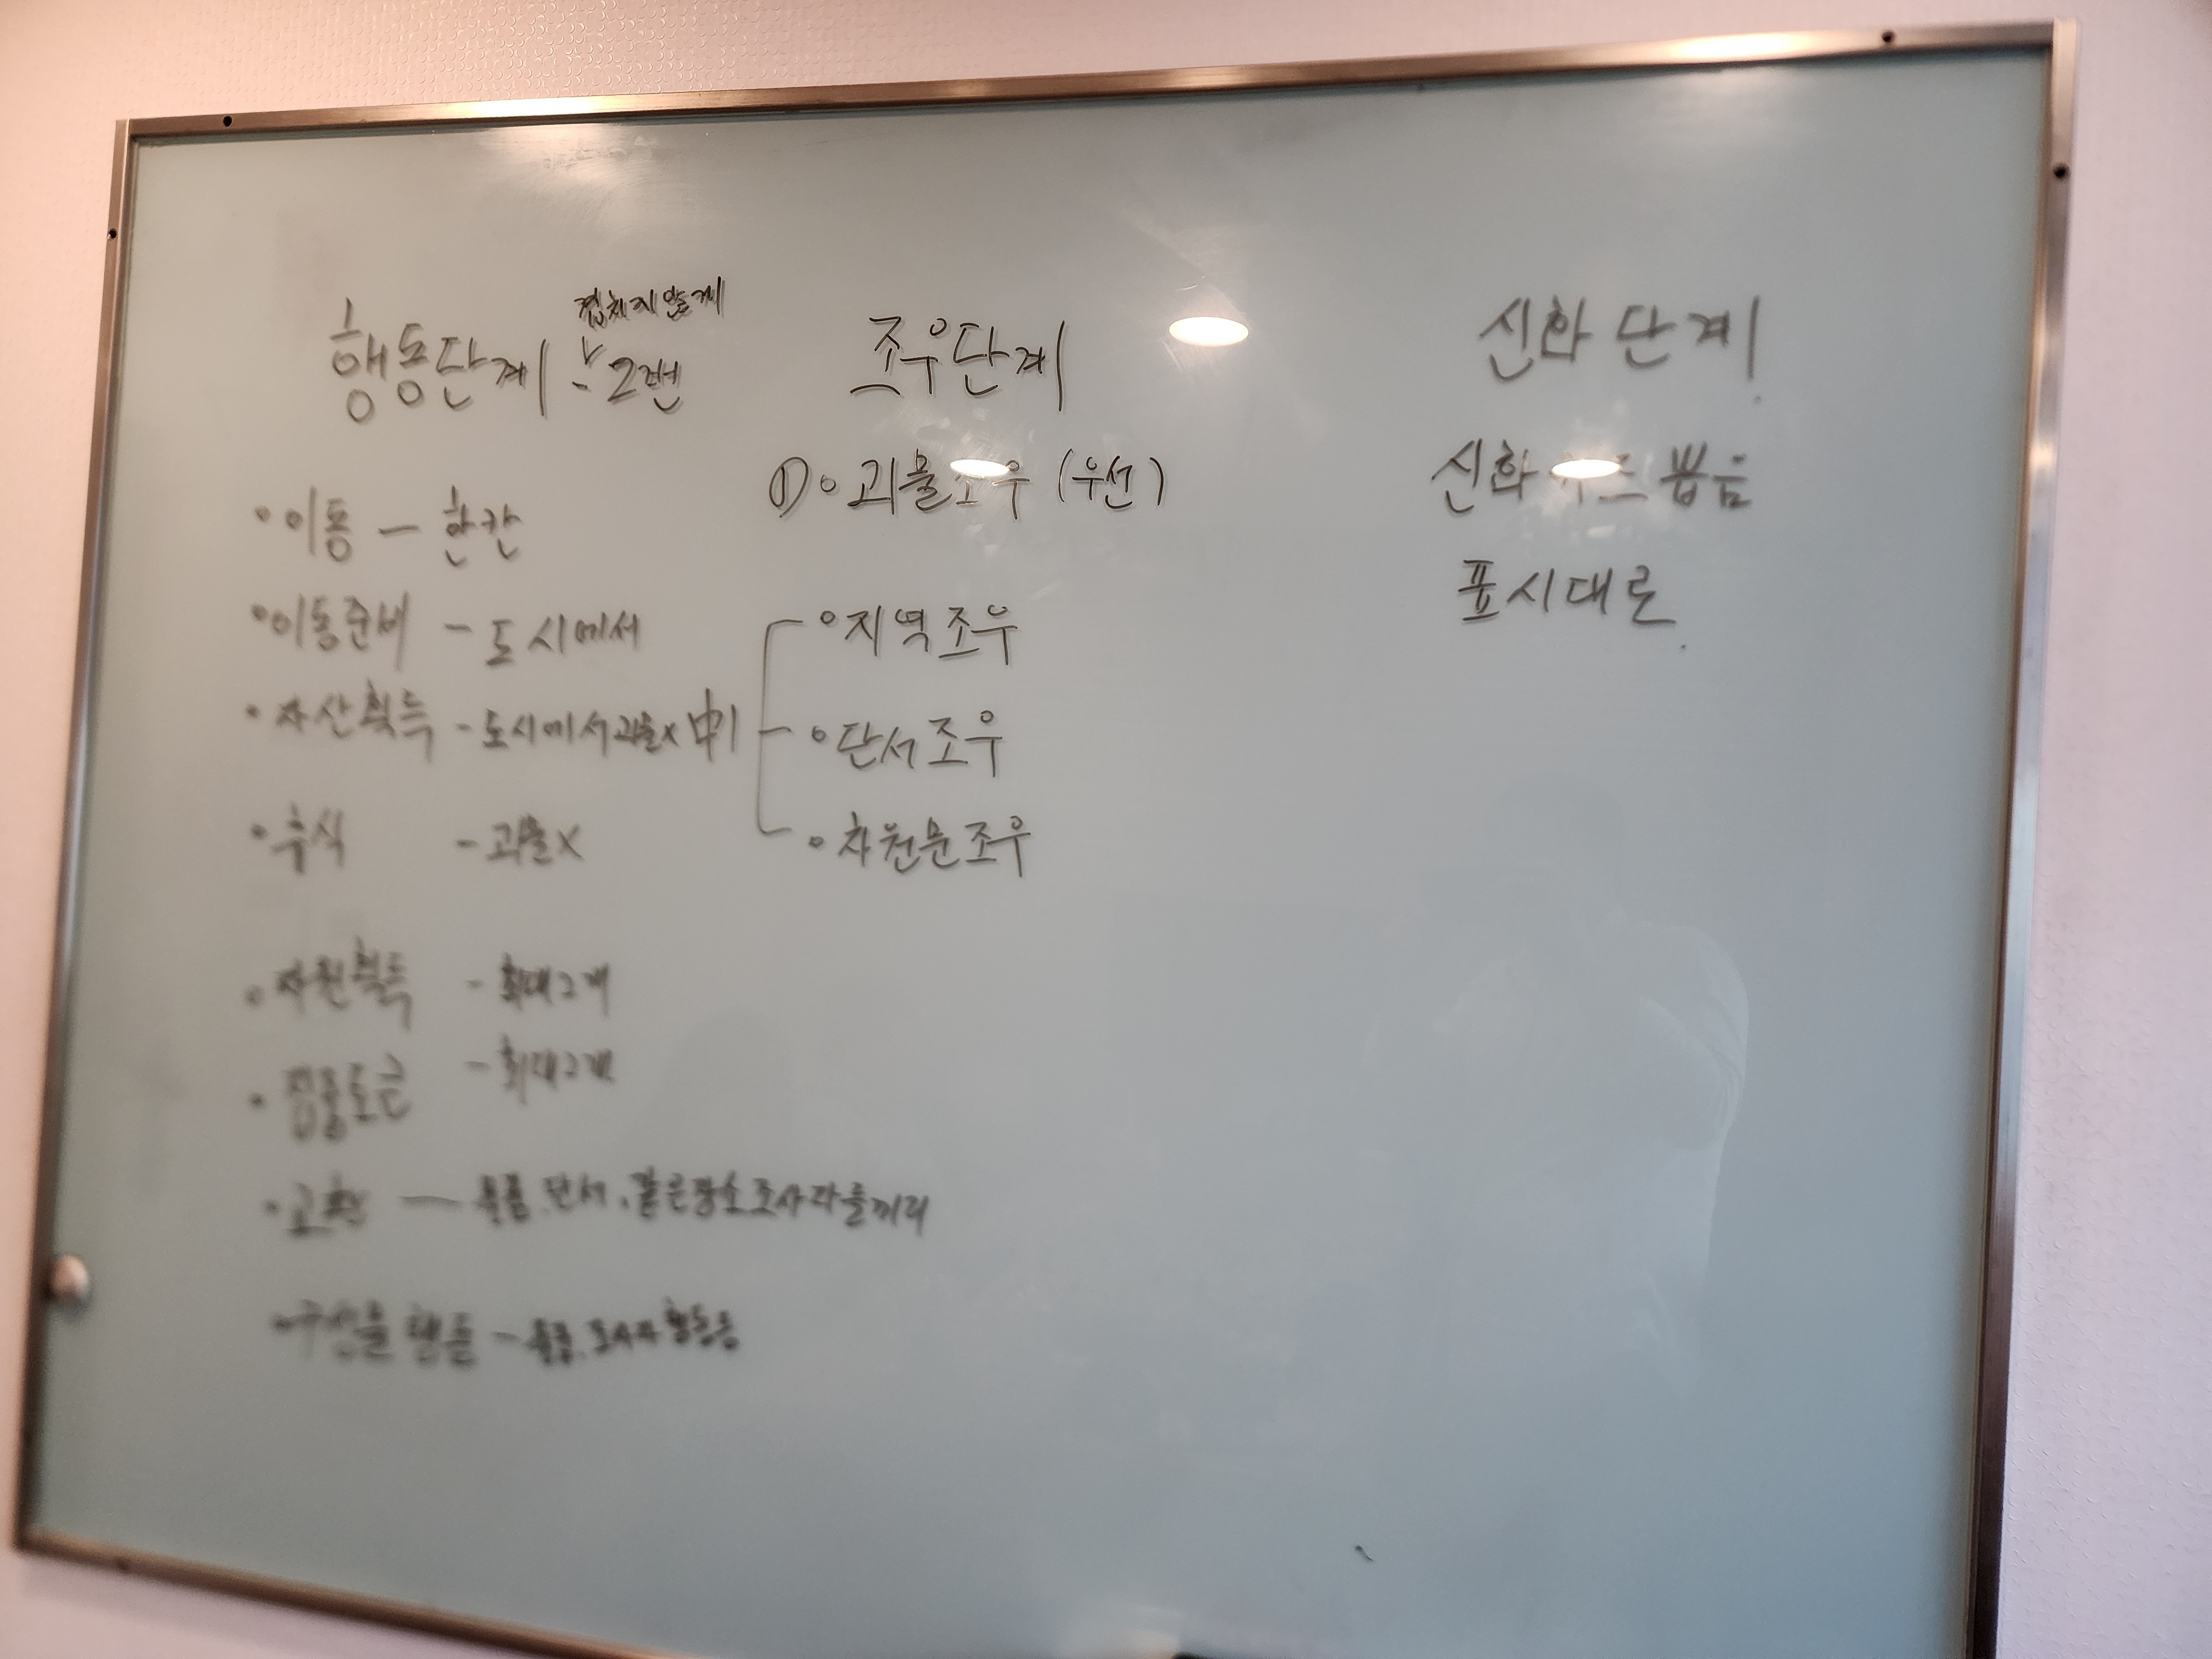 행동단계 - 2번
겹치지 않게
• 이동 — 한칸
• 이동준비 - 도시에서
• 자산획득 - 도시에서 괴물x
• 휴식 - 괴물X
• 자원획득 - 최대2개
• 집중토큰 - 최대2개
• 교환 — 물품, 단서, 같은장소 조사자들끼리
• 구성물 행동 - 물품, 조사자 행동등
조우단계
① 괴물조우 (우선)
지역조우
단서조우
차원문조우
신화단계
신화 뽑음
표시대로